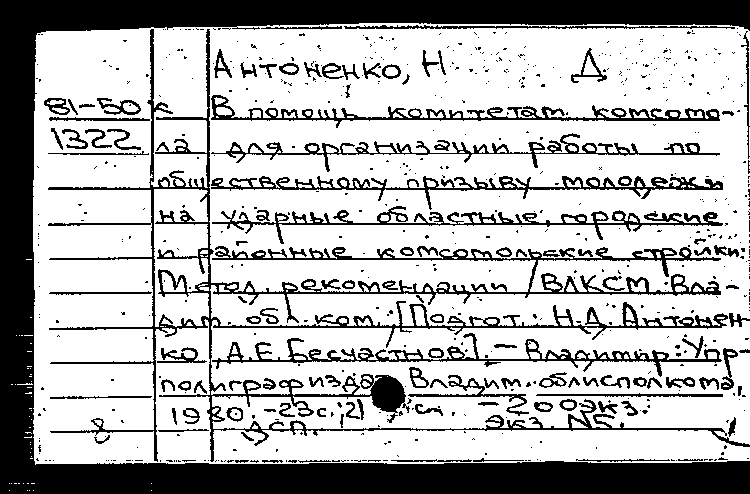 Антоненко, Н Д
81-50 к В помощь комитетам комсомо-
1322 ла для организации работы по
общественному призыву молодежи
на ударные областные, городские
и районные комсомольские стройки:
Метод. рекомендации / ВЛКСМ. Вла-
дим. обл. ком.; [Подгот.: Н.Д. Антонен-
ко, А.Е. Бесчастнов]. - Владимир: Упр-
полиграфиздат Владим. облисполкома,
1980. - 23 с.; 21 см. - 200 экз.
8 ДСП. Экз. №5.